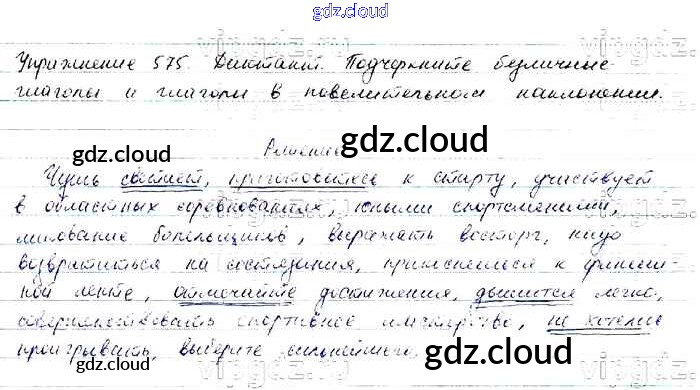 gdz.cloud
Упражнение 575. Диктант. Подчеркните безличные
глаголы и глаголы в повелительном наклонении.
gdz.cloud
Решение
gdz.cloud
Чуть светает, приготовьтесь к старту, участвует
в областных соревнованиях, юными спортсменами,
ликование болельщиков, выражать восторг, надо
возвратиться на состязания, прикоснешься к финиш-
ной ленте, отмечайте достижения, дышится легко,
совершенствовать спортивное мастерство, не хотелось
проигрывать, выберите сильнейшего.
gdz.cloud
gdz.cloud
gdz.cloud